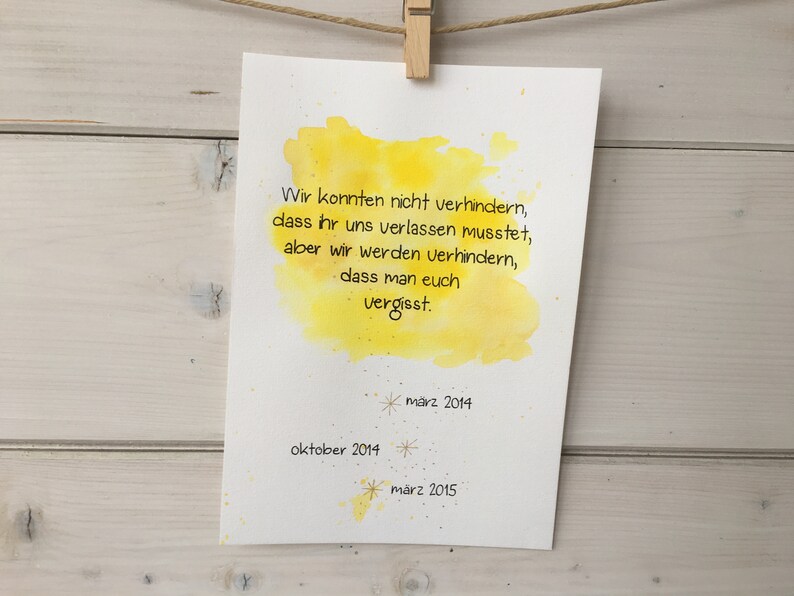 Wir konnten nicht verhindern,
dass ihr uns verlassen musstet,
aber wir werden verhindern,
dass man euch
vergisst.
märz 2014
oktober 2014
märz 2015